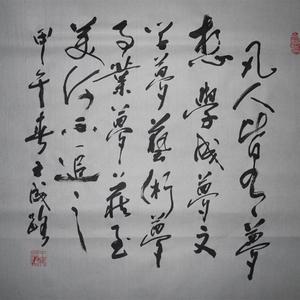 凡人皆有夢
想學成夢文
学夢藝術夢
事業夢至
美何不追之
甲午春王成